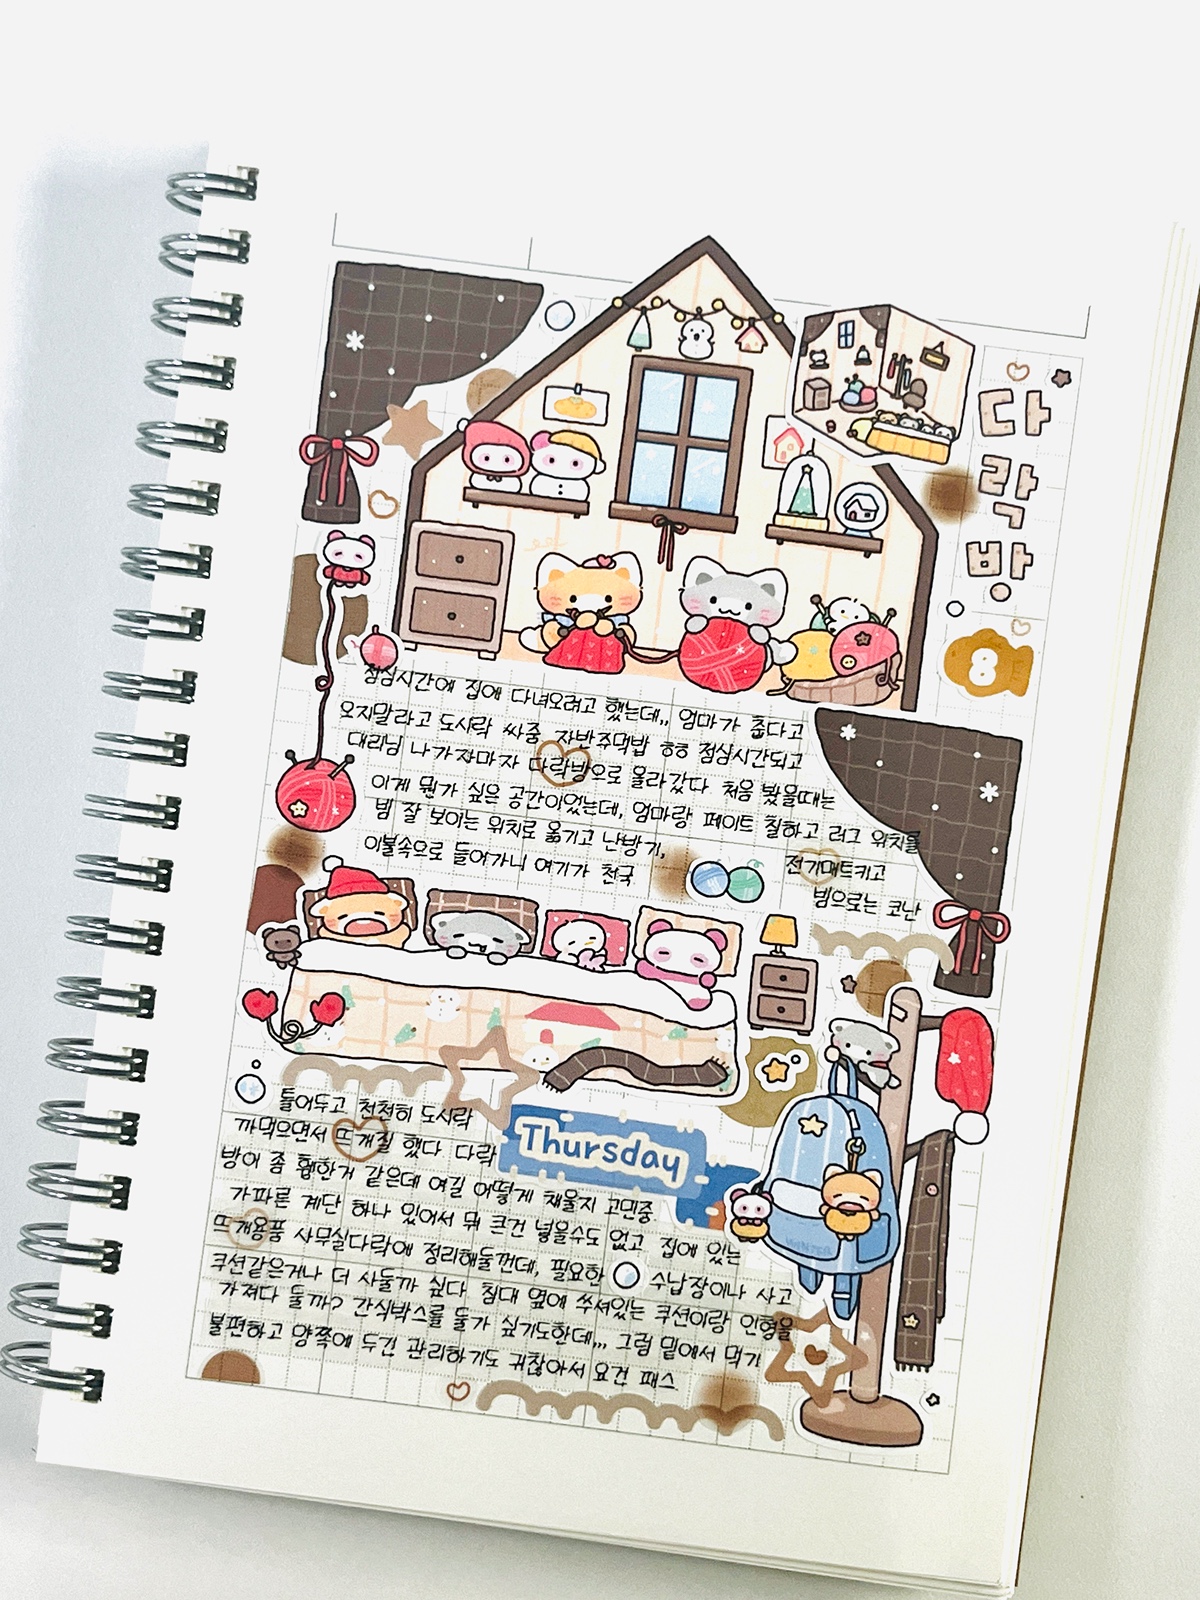 다락방
8
점심시간에 집에 다녀오려고 했는데,, 엄마가 춥다고
오지말라고 도시락 싸줌 자반주먹밥 ㅎㅎ 점심시간되고
대리님 나가자마자 다락방으로 올라갔다 처음 봤을때는
이게 뭔가 싶은 공간이었는데, 엄마랑 페이트 칠하고 러그 위치를
빔 잘 보이는 위치로 옮기고 난방기, 전기매트키고
이불속으로 들어가니 여기가 천국 빔으로는 코난
틀어두고 천천히 도시락
까먹으면서 뜨개질 했다 다락
Thursday
방이 좀 휑한거 같은데 여길 어떻게 채울지 고민중
가파른 계단 하나 있어서 뭐 큰건 넣을수도 없고 집에 있는
뜨개용품 사무실다락에 정리해둘껀데, 필요한 수납장이나 사고
쿠션같은거나 더 사둘까 싶다 침대 옆에 쑤셔있는 쿠션이랑 인형을
가져다 둘까? 간식박스를 둘가 싶기도한데,,, 그럼 밑에서 먹기
불편하고 양쪽에 두긴 관리하기도 귀찮아서 요건 패스
WINTER